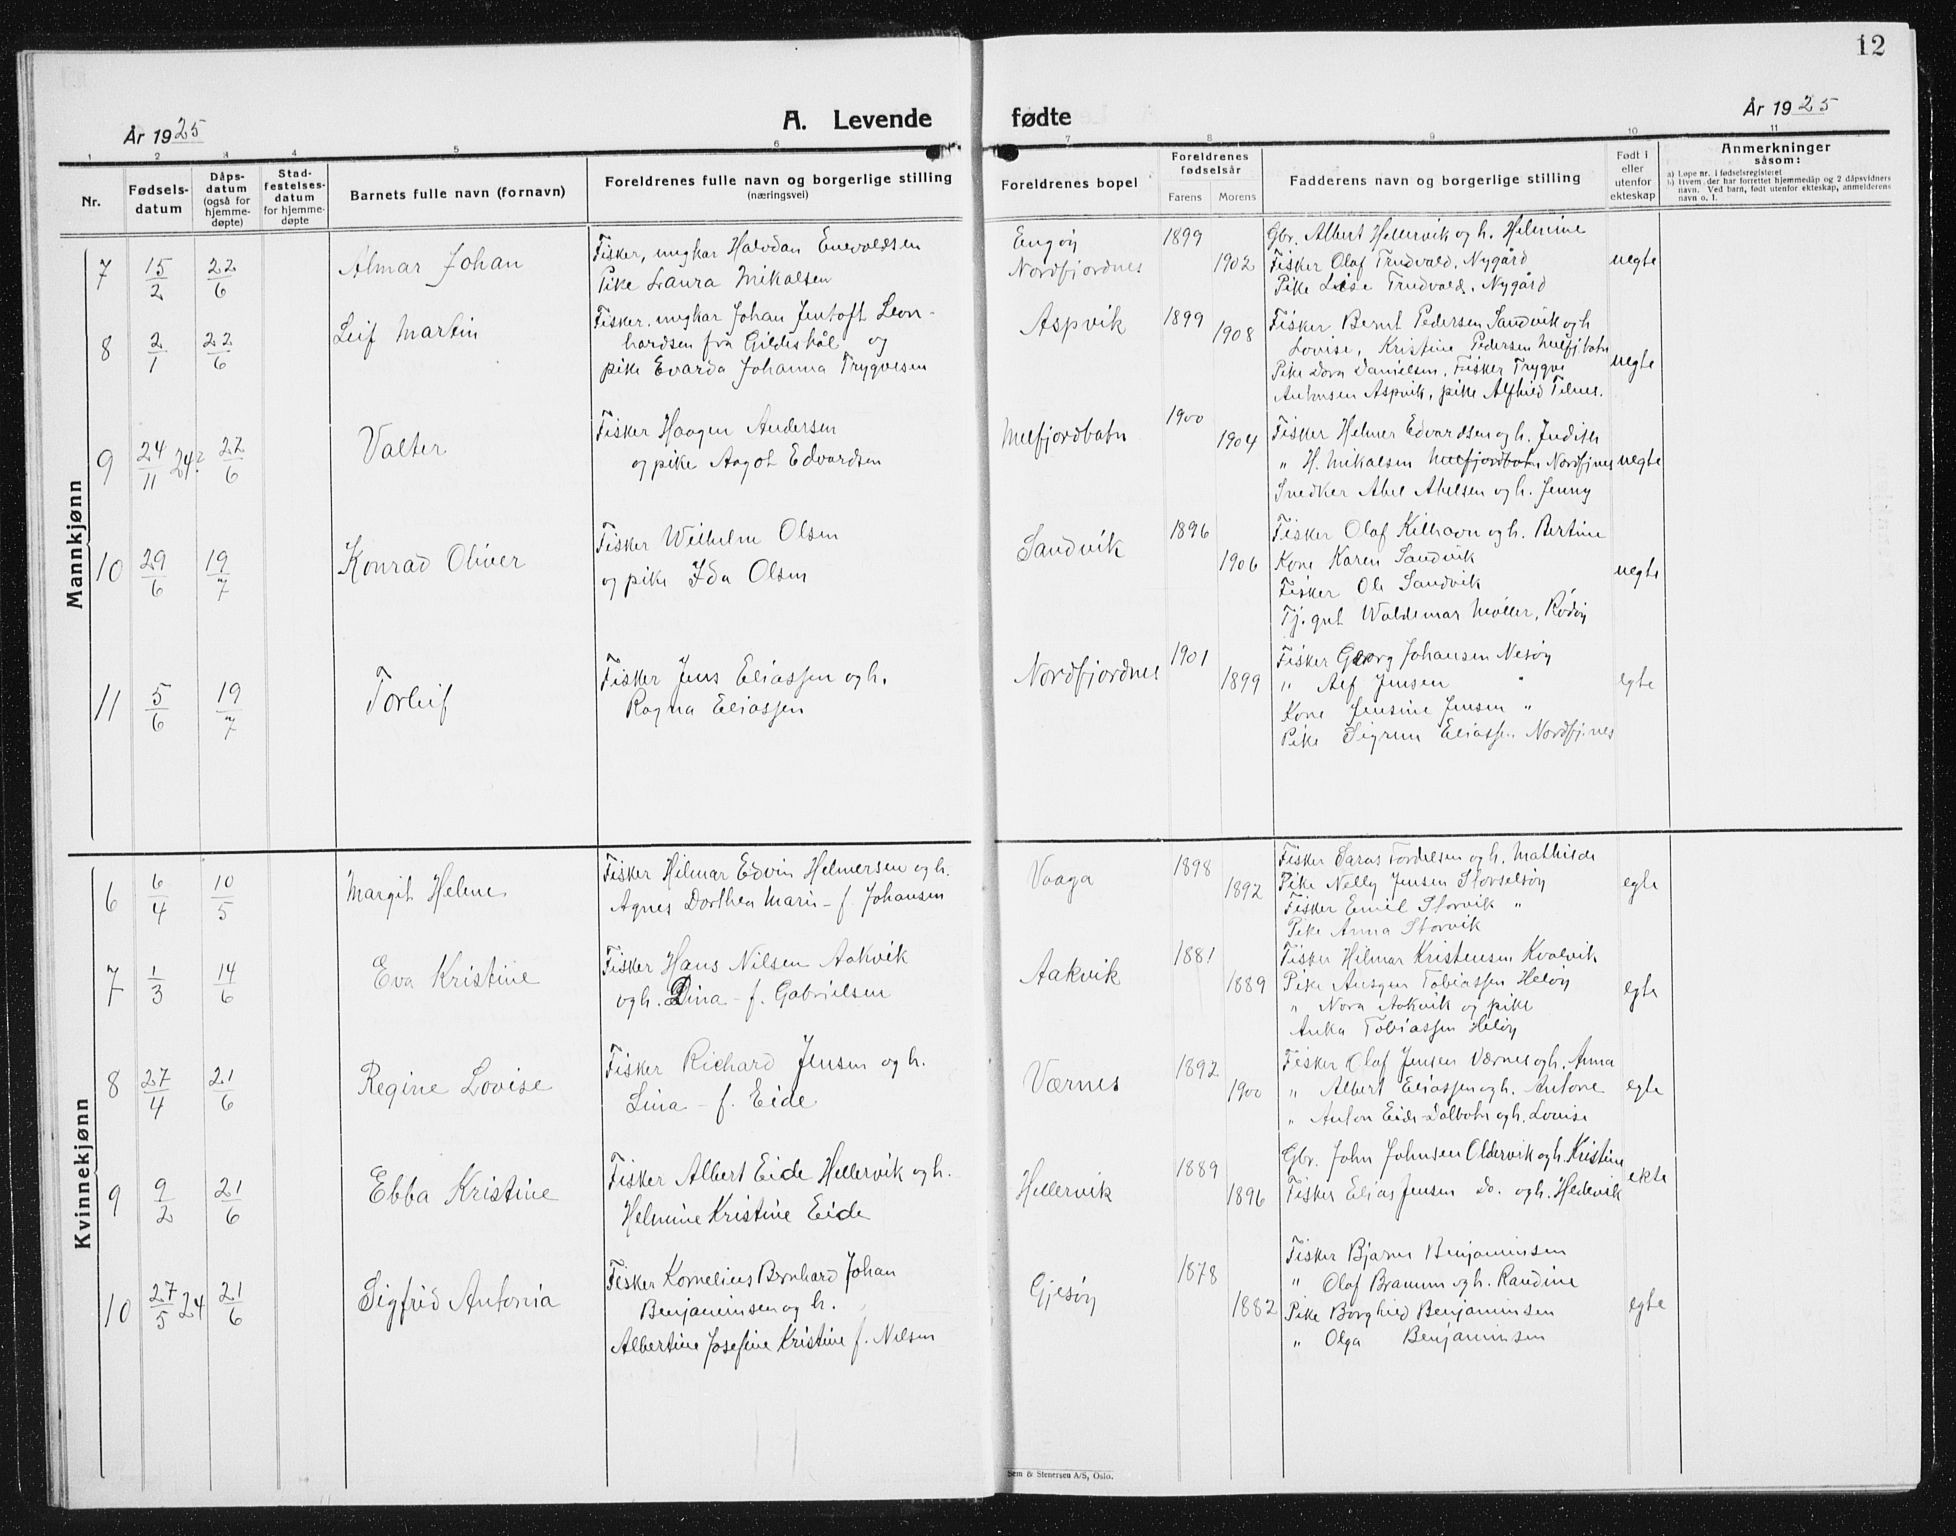 12
År 1925
A. Levende fødte
År 1925
1 2 3 4 5 6 7 8 9 10 11
Nr.
Fødsels-datum
Dåps-datum (også for hjemme-døpte)
Stad-festelses-datum for hjemme-døpte
Barnets fulle navn (fornavn)
Foreldrenes fulle navn og borgerlige stilling (næringsvei)
Foreldrenes bopel
Foreldrenes fødselsår
Farens Morens
Fadderens navn og borgerlige stilling
Født i eller utenfor ekteskap
Anmerkninger såsom:
a) Løpe nr. i fødselsregisteret
b) Hvem der har forrettet hjemmedåp og 2 dåpsvidners navn. Ved barn, født utenfor ekteskap, anmelderens navn o. l.
Mannkjønn
7 15/2 22/6 Almar Johan
Fisker, ungkar Halvdan Enevoldsen
Pike Laura Mikalsen
Engøy
Nordfjordnes
1899 1902
Gbr. Albert Hellervik og h. Helmine
Fisker Olaf Trudvald, Nygård
Pike Lise Trudvald, Nygård
uegte
8 2/1 22/6 Leif Martin
Fisker, ungkar Johan Jentoft Leon-
hardsen frå Gildeskål og
pike Evarda Johanna Trygvesen
Aspvik
1899 1908
Fisker Bernt Pedersen Sandvik og h
Lovise, Kristine Pedersen Melfj.botn
Pike Dora Danielsen, Fisker Trygve
Antonsen Aspvik, pike Alfhild Telnes.
uegte
9 24/11 24? 22/6 Valter
Fisker Haagen Andersen
og pike Aagot Edvardsen
Melfjordbotn
1900 1904
Fisker Helmer Edvardsen og h. Judith
" H. Mikalsen Melfjordbotn Nordfjnes
Snedker Abel Abelsen og h. Jenny
uegte
10 29/6 19/7 Konrad Oliver
Fisker Wilhelm Olsen
og pike Ida Olsen
Sandvik
1896 1906
Fisker Olaf Kilhavn og h. Bertine
Kone Karen Sandvik
Fisker Ole Sandvik
Tj.gut Waldemar Møller, Rødøy
uegte
11 5/6 19/7 Torleif
Fisker Jens Eliassen og h.
Ragna Eliassen
Nordfjordnes
1901 1899
Fisker Georg Johansen Nesøy
" Alf Jensen "
Kone Jensine Jensen "
Pike Sigrun Eliass. Nordfj.nes
egte
Kvinnekjønn
6 6/4 10/5 Margit Helene
Fisker Hilmar Edvin Helmersen og h.
Agnes Dorthea Marie - f. Johansen
Vaaga
1898 1892
Fisker Tordelsen og h. Mathilde
Pike Nelly Jensen Storselsøy
Fisker Emil Storvik "
Pike Anna Storvik
egte
7 1/3 14/6 Eva Kristine
Fisker Hans Nilsen Aakvik
og h. Dina - f. Gabrielsen
Aakvik
1881 1889
Fisker Hilmar Kristensen Kvalvik
Pike Tobiassen Heløy
" Nora Aakvik og pike
Anka Tobiassen Heløy
egte
8 27/4 21/6 Regine Lovise
Fisker Richard Jensen og h.
Lina - f. Eide
Værnes
1892 1900
Fisker Olaf Jensen Værnes og h. Anna
" Albert Eliassen og h. Antone
" Anton Eide Dalbotn og h. Lovise
egte
9 9/2 21/6 Ebba Kristine
Fisker Albert Eide Hellervik og h.
Helmine Kristine Eide
Hellervik
1889 1896
Gbr. John Johnsen Oldervik og h. Kristine
Fisker Elias Jensen do. og h. Hedevik
ekte
10 27/5 24 21/6 Sigfrid Antonia
Fisker Kornelius Bernhard Johan
Benjaminsen og h.
Albertine Josefine Kristine f. Nilsen
Gjesøy
1878 1882
Fisker Bjarne Benjaminsen
" Olaf Bramm og h. Randine
Pike Borghild Benjaminsen
" Olga Benjaminsen
egte
Sem & Stenersen A/S, Oslo.